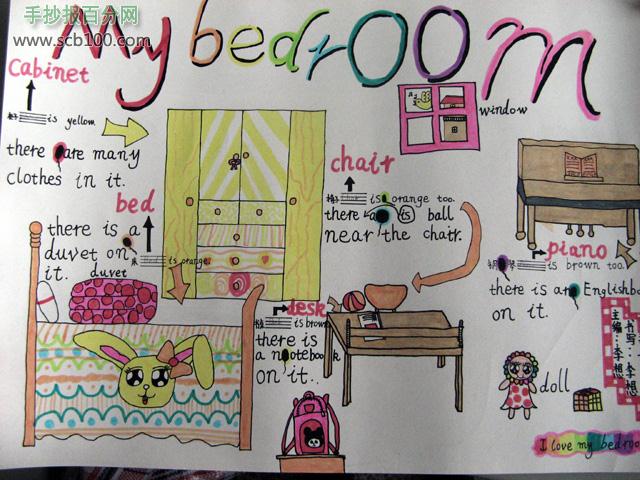 手抄报百分网
www.scb100.com
My bedroom
Cabinet
is yellow.
there are many
clothes in it.
bed
there is a
duvet on
it.
is orange.
duvet
chair
is orange too.
there is ball
near the chair.
window
piano
is brown too.
there is an Englishbo
on it.
desk
is brown
there is
a notebook
on it.
doll
书写：李想
主编：李想
I love my bedroo